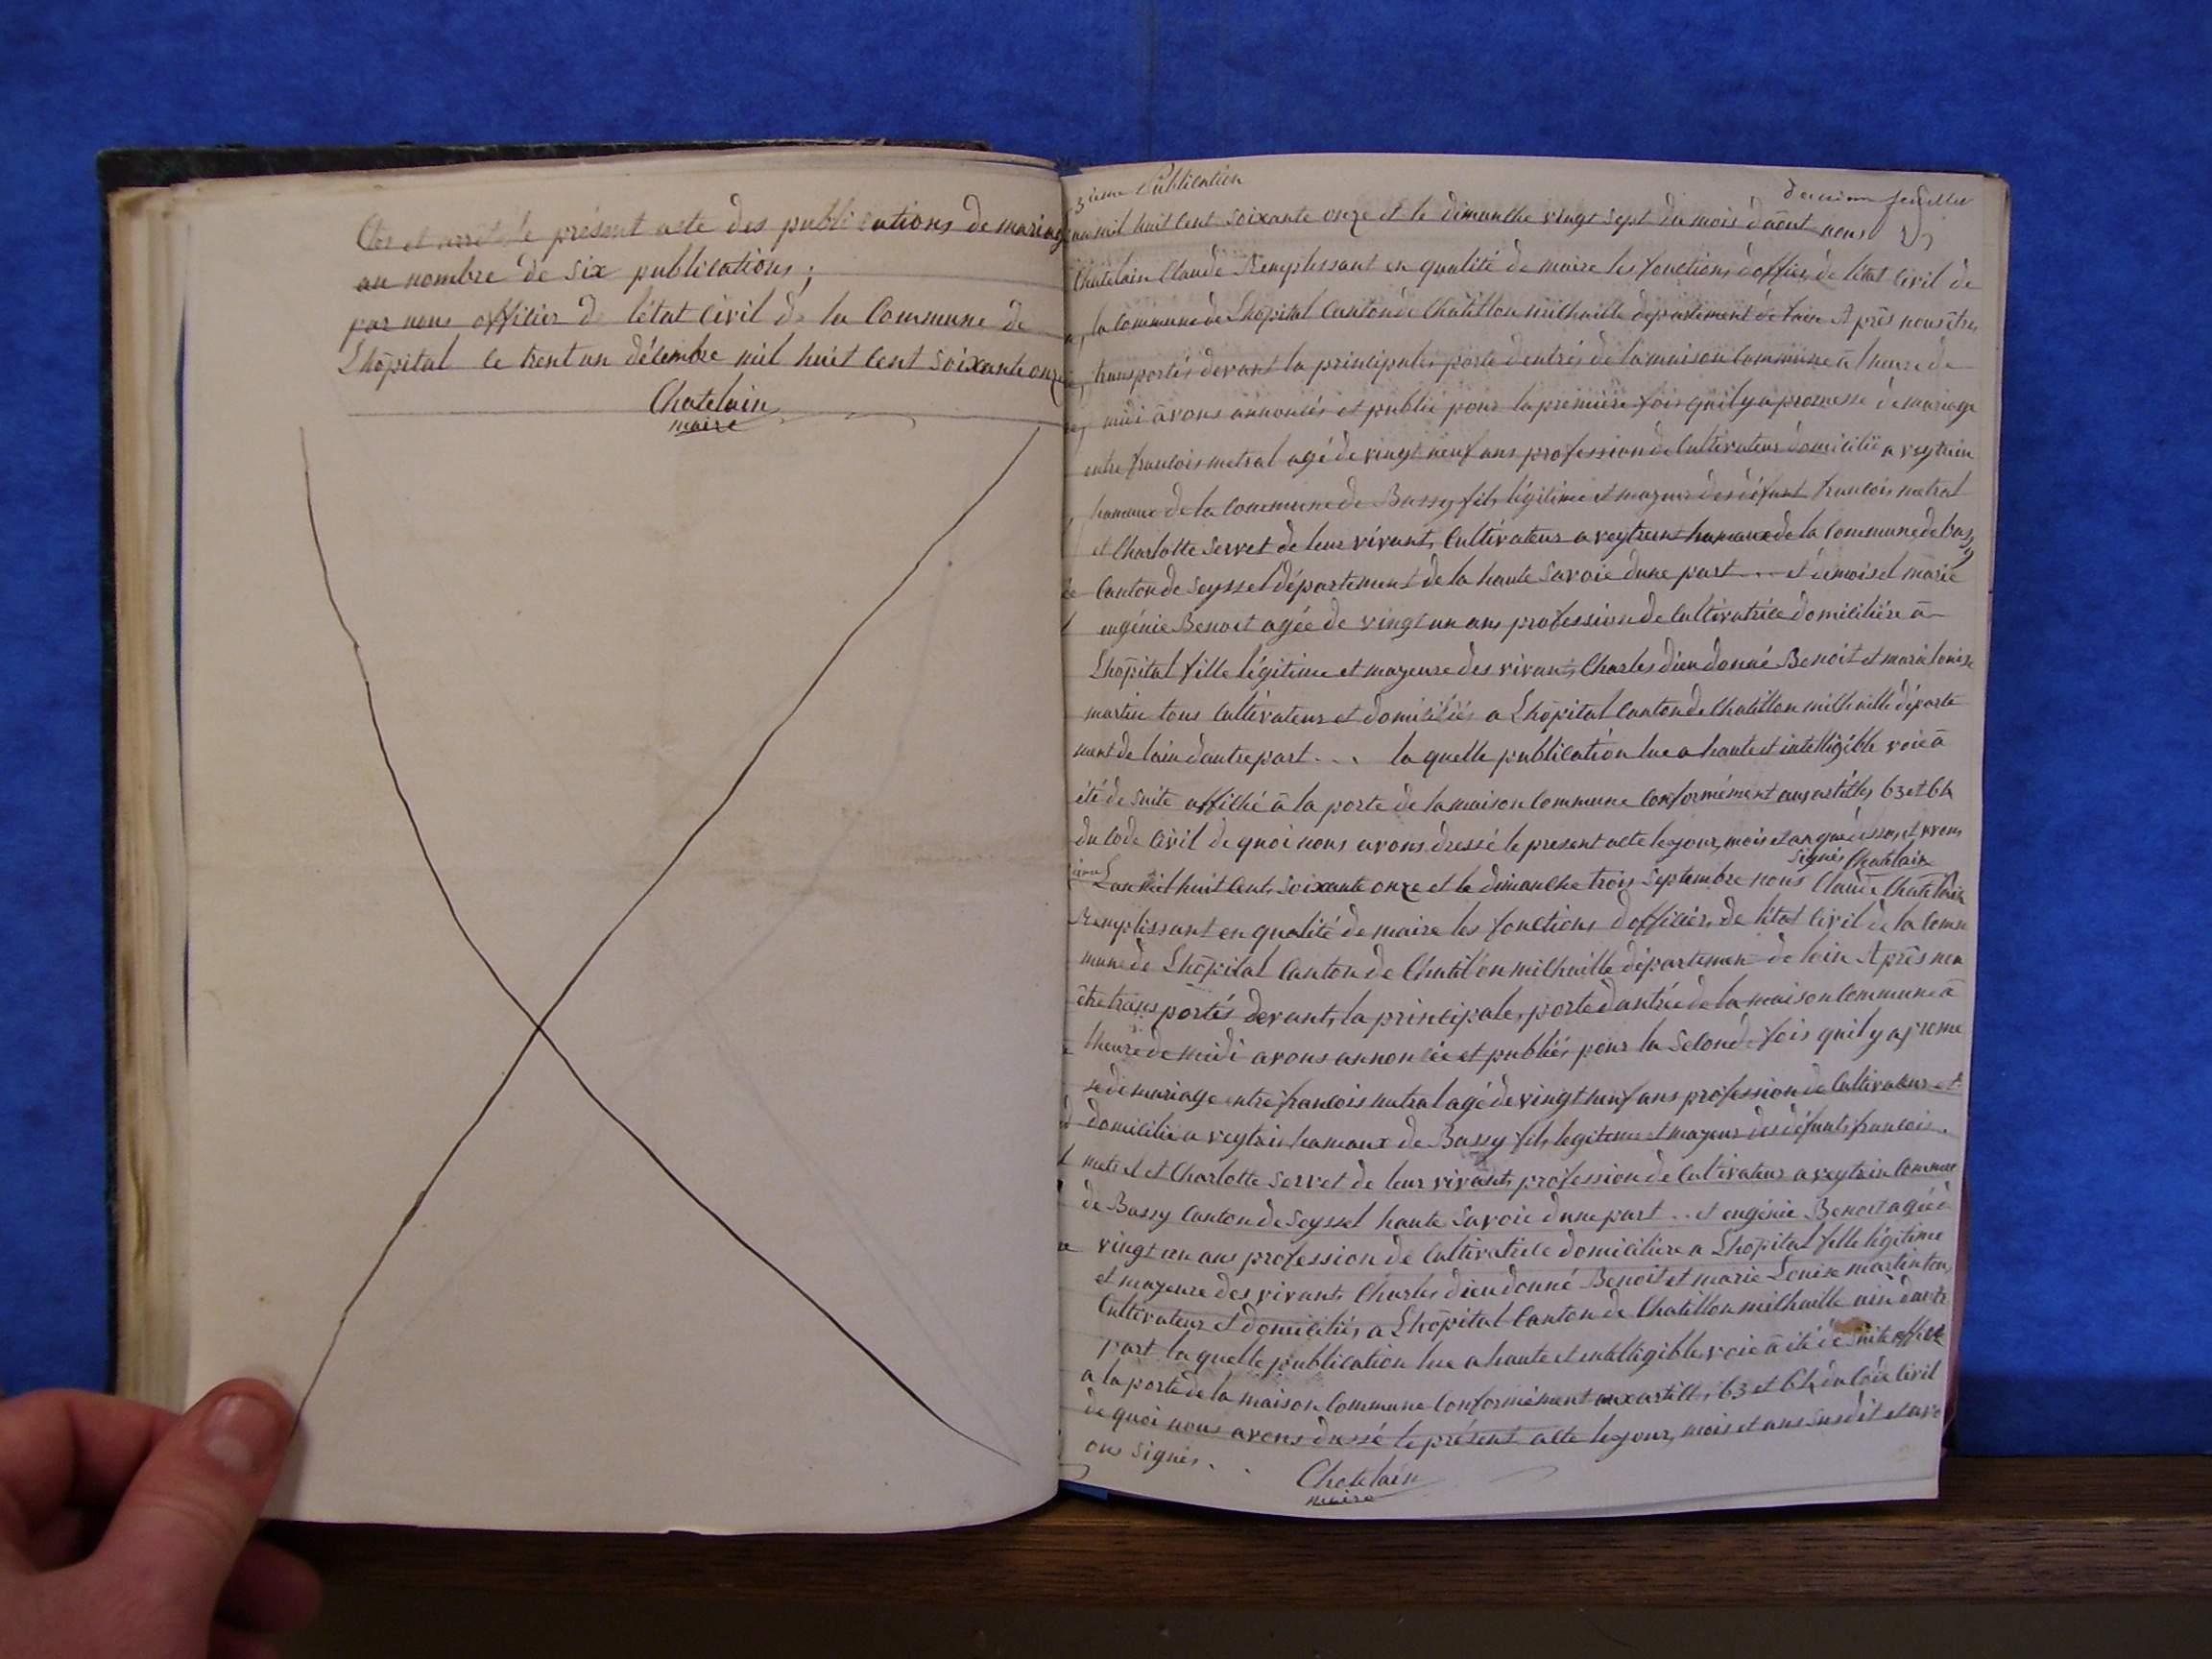 Clos et arrêté le présent acte des publications de mariage
au nombre de six publications ;
par nous officier de létat Civil de la Commune de
Lhôpital le trent un décembre mil huit Cent soixante onze
Chatelain
maire
3ieme Publication
dernier feuillet
an mil huit Cent soixante onze et le dimanche vingt sept du mois daôut nous
Chatelain Claude Remplissant en qualité de maire les fonctions dofficier de létat Civil de
la Commune de Lhôpital Canton de Chatillon michaille département de lain Après nous êtres
transportés devant la principale, porte dentrée de la maison Commune à lheure de
midi avons annoncés et publié pour la première fois quil y a promesse de mariage
entre francois metral agé de vingt neuf ans profession de Cultivateur domicilié a veytrin
hamaux de la Commune de Bassy fils légitime et mayeur des défunt francois metral
et Charlotte Servet de leur vivant, Cultivateur a veytrin hamaux de la Commune de bassy
Canton de Seyssel département de la haute Savoie dune part ... et demoisel marie
eugénie Benoit agée de vingt un ans profession de Cultivatrice domicilière à
Lhôpital fille légitime et mayeure des vivant, Charles dieudonné Benoit et marie louise
martin tous Cultivateur et domiciliés a Lhôpital Canton de Chatillon michaille départe
ment de lain dautre part ... la quelle publication lue a haute et intelligible voie à
été de suite affiché à la porte de la maison Commune Conformément aux articles 63 et 64
du Code Civil de quoi nous avons dressé le present acte les jour, mois et an que dessus et avons
signés Chatelain
Lan mil huit Cent, soixante onze et le dimanche trois Septembre nous Claude Chatelain
Remplissant en qualité de maire les fonctions dofficier, de létat Civil de la Com
mune de Lhôpital Canton de Chatillon michaille département de lain Après nou
être transportés devant, la principale, porte dantrée de la maison Commune à
lheure de midi avons annoncée et publiés pour la Seconde fois quil y a prome
se de mariage entre francois metral agé de vingt neuf ans profession de Cultivateur et
domicilié a veytrin hamaux de Bassy fils legiteme et mayeur des défunts francois
metral et Charlotte Servet de leur vivant, profession de Cultivateur a veytrin Commune
de Bassy Canton de Seyssel haute Savoie dune part .. et eugénie Benoit agée de
vingt un ans profession de Cultivatrice domicilière a Lhôpital fille légitime
et mayeure des vivants Charles dieudonné Benoit et marie Louise martin tous
Cultivateur et domiciliés a Lhôpital Canton de Chatillon michaille ain dautre
part la quelle publication lue a haute et intelligible, voie à été de suite affiché
a la porte de la maison Commune Conformément aux articles, 63 et 64 du Code Civil
de quoi nous avons dressé le présent acte les jour, mois et ans susdit et avo
ons signés . .
Chatelain
maire